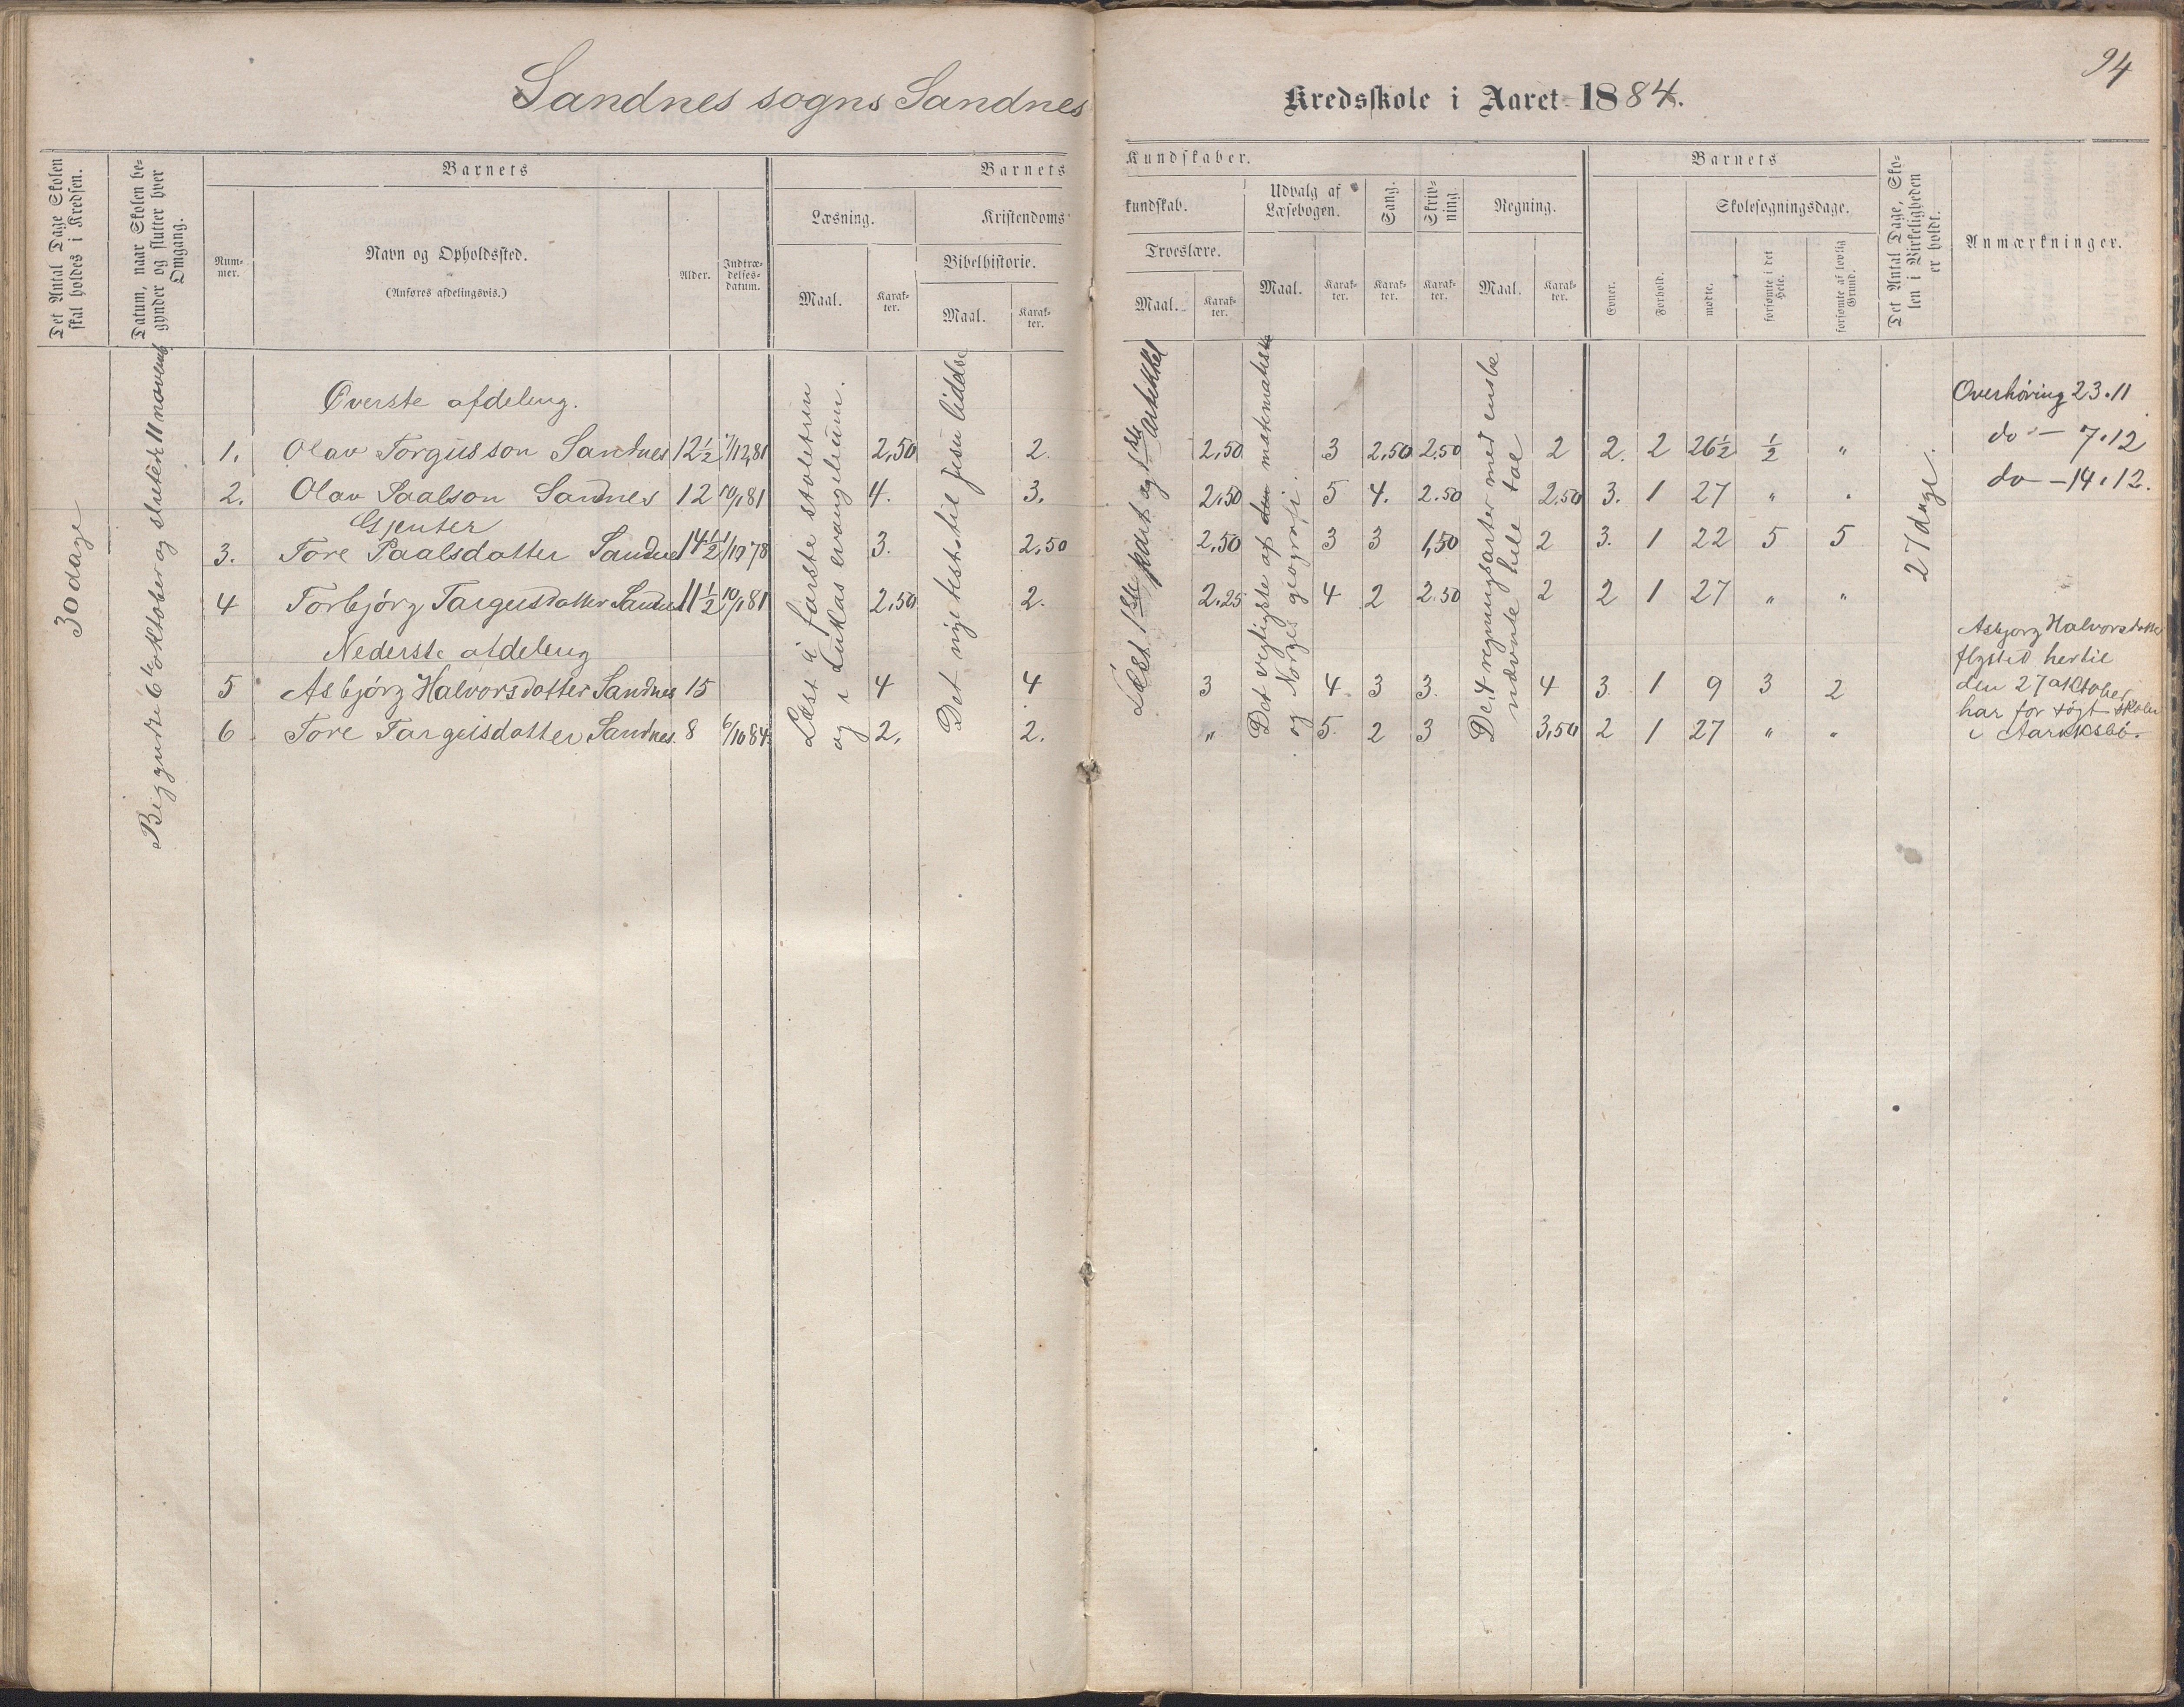 94
Sandnes sogns Sandnes Kredsskole i Aaret 1884.
Det Antal Dage Skolen skal holdes i Kredsen.
Datum, naar Skolen begynder og slutter hver Omgang.
Barnets
Num-
mer.
Navn og Opholdssted.
(Anføres afdelingsvis.)
Alder.
Indtræ-
delses-
datum.
Barnets Kundskaber.
Læsning.
Maal.
Karak-
ter.
Kristendomskundskab.
Bibelhistorie.
Maal.
Karak-
ter.
Troeslære.
Maal.
Karak-
ter.
Udvalg af
Læsebogen.
Maal.
Karak-
ter.
Sang.
Karak-
ter.
Skriv-
ning.
Karak-
ter.
Regning.
Maal.
Karak-
ter.
Barnets
Evner.
Forhold.
Skolesøgningsdage.
mødte.
forsømte i det
Hele.
forsømte af lovlig
Grund.
Det Antal Dage, Sko-
len i Virkeligheden
er holdt.
Anmærkninger.
30 dage
Begyndte 6te oktober og sluttet 11 november
Læst i første stoletrin
og i Lukas evangelium.
Det nye test. til Jesu lidelse
Læst 1ste part og 1ste artikkel
Det vigtigste af den matematiske
og Norges geografi.
De 4 regningsarter med ensbe
nævnte hele tal
27 dage.
Øverste afdeling.
1. Olav Torgusson Sandnes 12½ 7/12 81 2,50 2. 2,50 3 2,50 2.50 2 2. 2 26½ ½ "
2. Olav Paalson Sandnes 12 10/1 81 4. 3. 2,50 5 4. 2.50 2,50 3. 1 27 " "
Gjenter
3. Tore Paalsdatter Sandnes 14½ 1/10 78 3. 2,50 2,50 3 3 1,50 2 3. 1 22 5 5
4 Torbjørg Targusdatter Sandnes 11½ 10/1 81 2,50 2. 2,25 4 2 2.50 2 2 1 27 " "
Nederste afdeling
5 Asbjørg Halvorsdatter Sandnes 15 4 4 3 4 3 3. 4 3 1 9 3 2
6 Tore Targusdatter Sandnes. 8 6/10 84. 2. 2. " 5. 2 3 3,50 2 1 27 " "
Overhøring 23.11
do — 7.12
do — 14.12.
Asbjørg Halvorsdatter
flytted hertil
den 27 oktober
har før søgt skolen
i Aaraksbø.